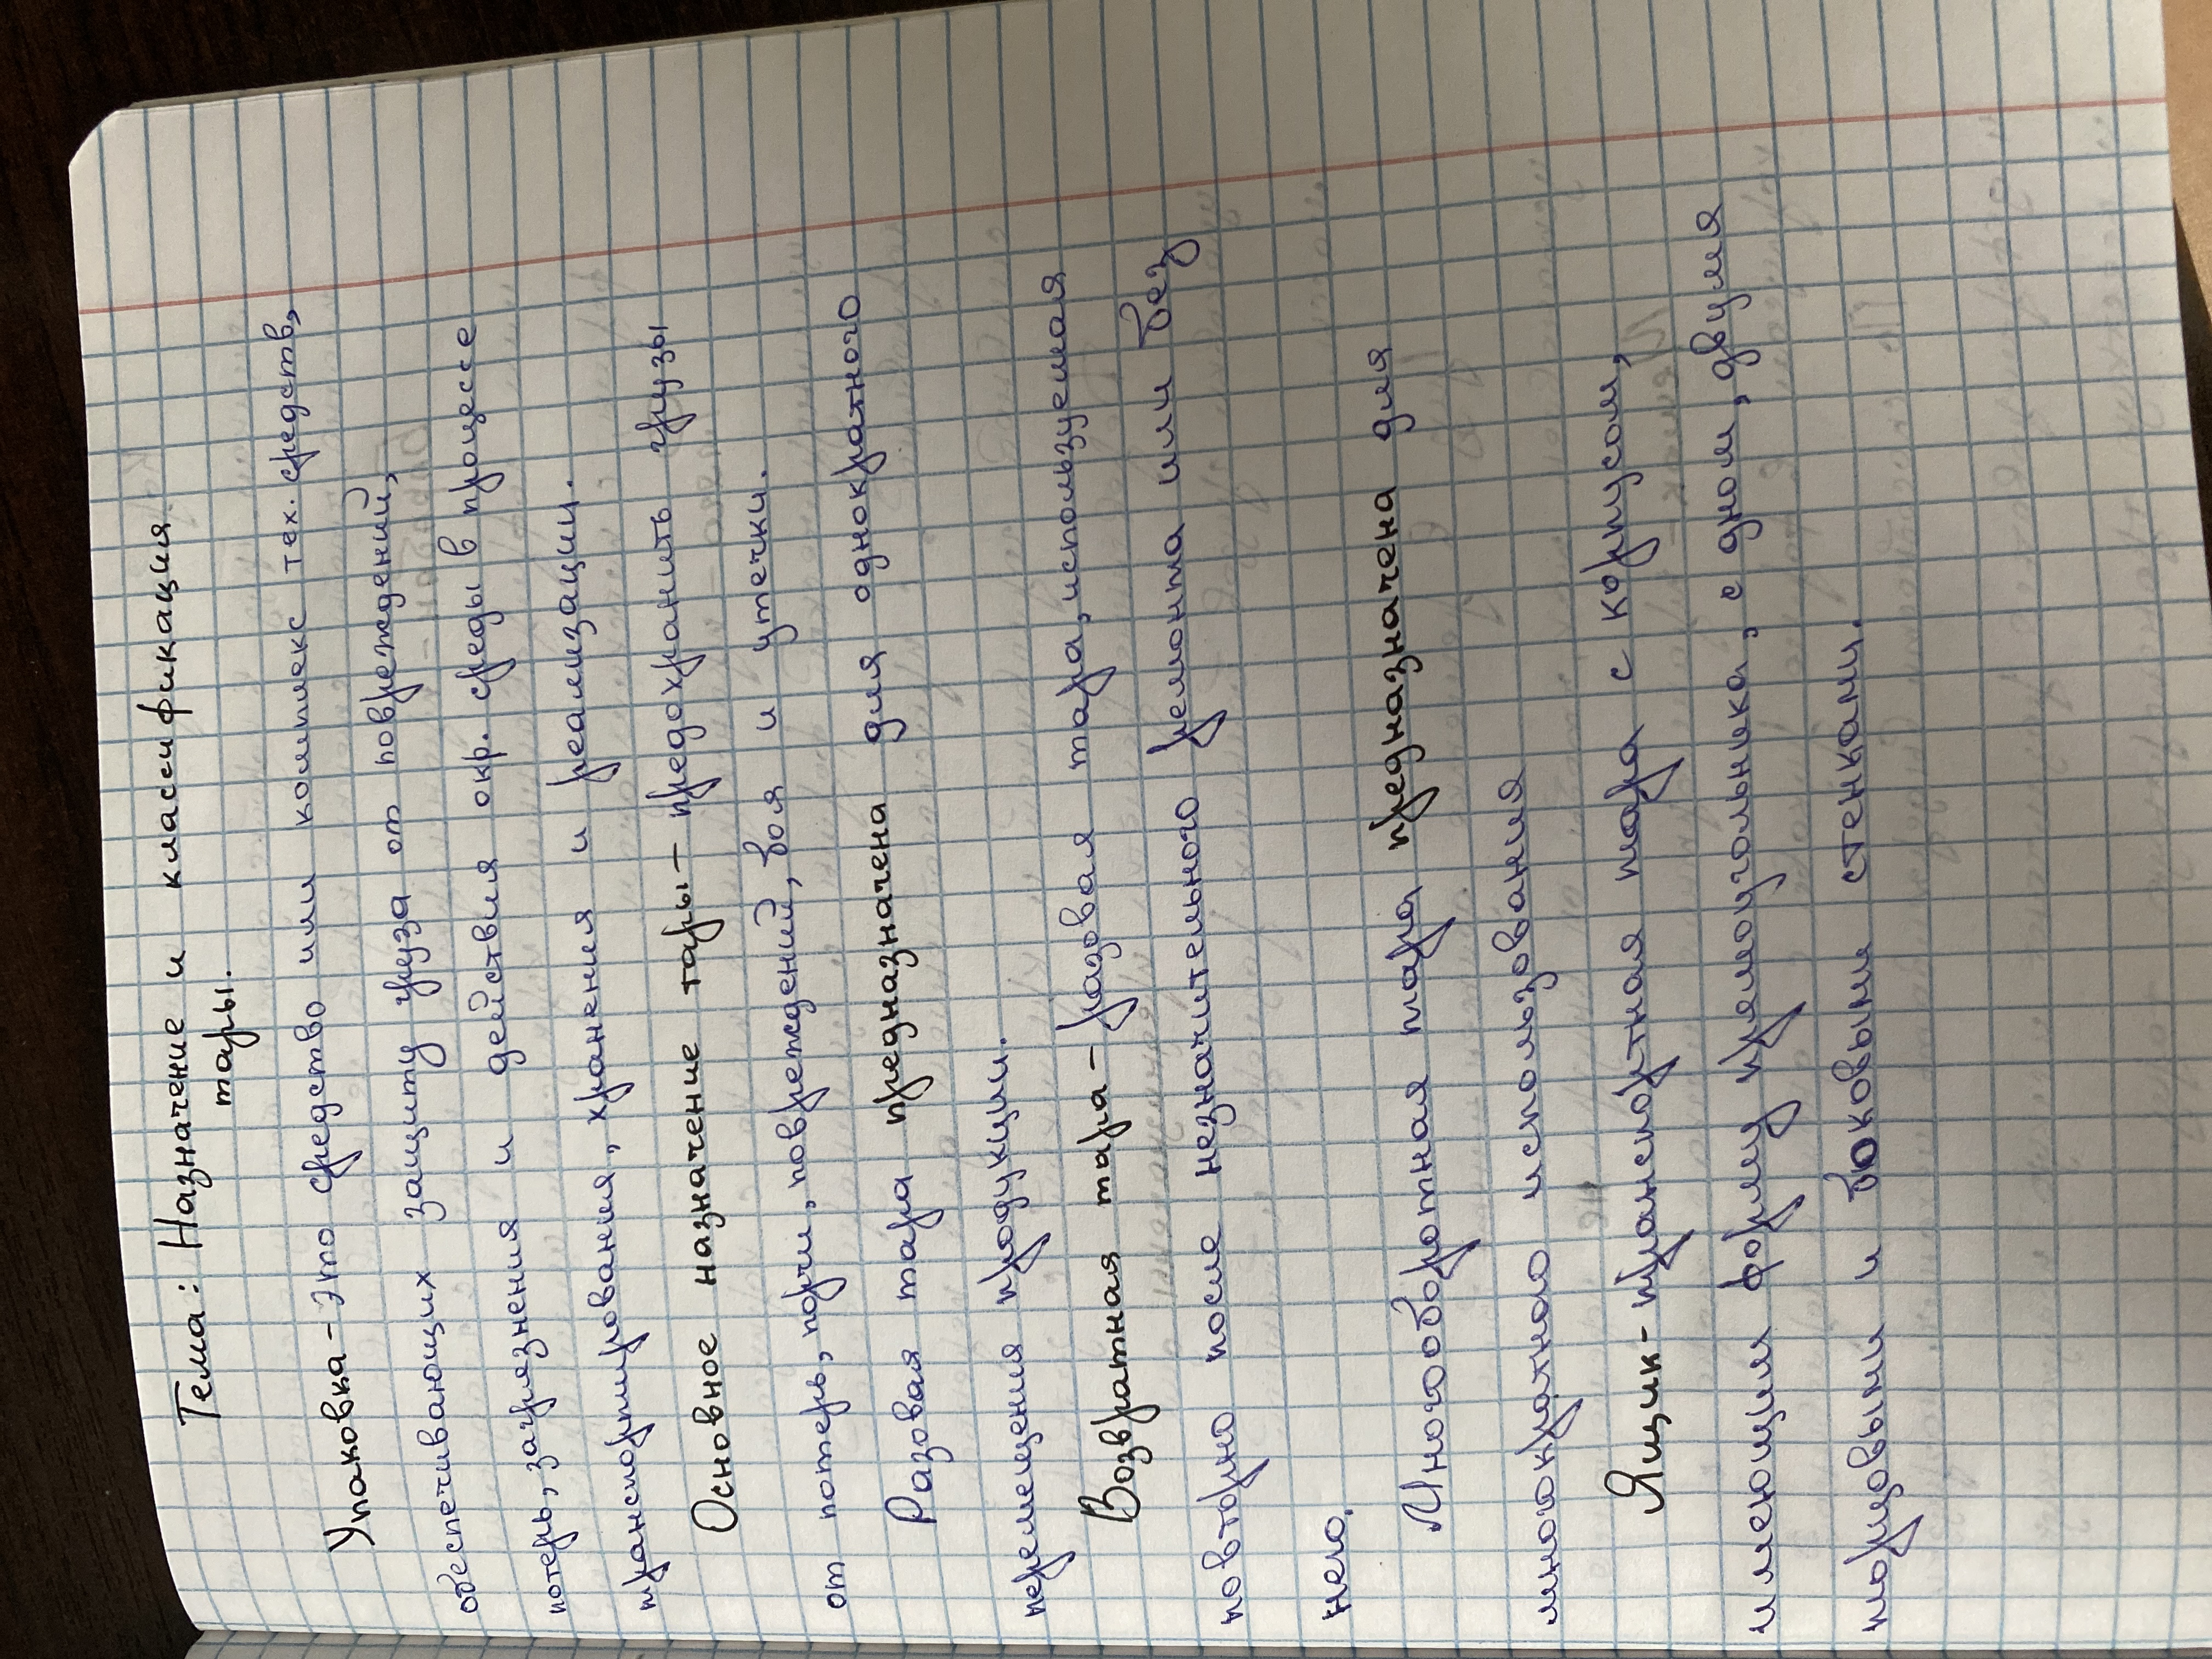 Тема: Назначение и классификация
тары.
Упаковка - это средство или комплекс тех. средств,
обеспечивающих защиту груза от повреждений,
потерь, загрязнения и действия окр. среды в процессе
транспортирования, хранения и реализации.
Основное назначение тары - предохранить грузы
от потерь, порчи, повреждений, боя и утечки.
Разовая тара предназначена для однократного
перемещения продукции.
Возвратная тара - разовая тара, используемая
повторно после незначительного ремонта или без
него.
Многооборотная тара предназначена для
многократного использования
Ящик - транспортная тара с корпусом,
имеющим форму прямоугольника, с дном, двумя
торцовыми и боковыми стенками.